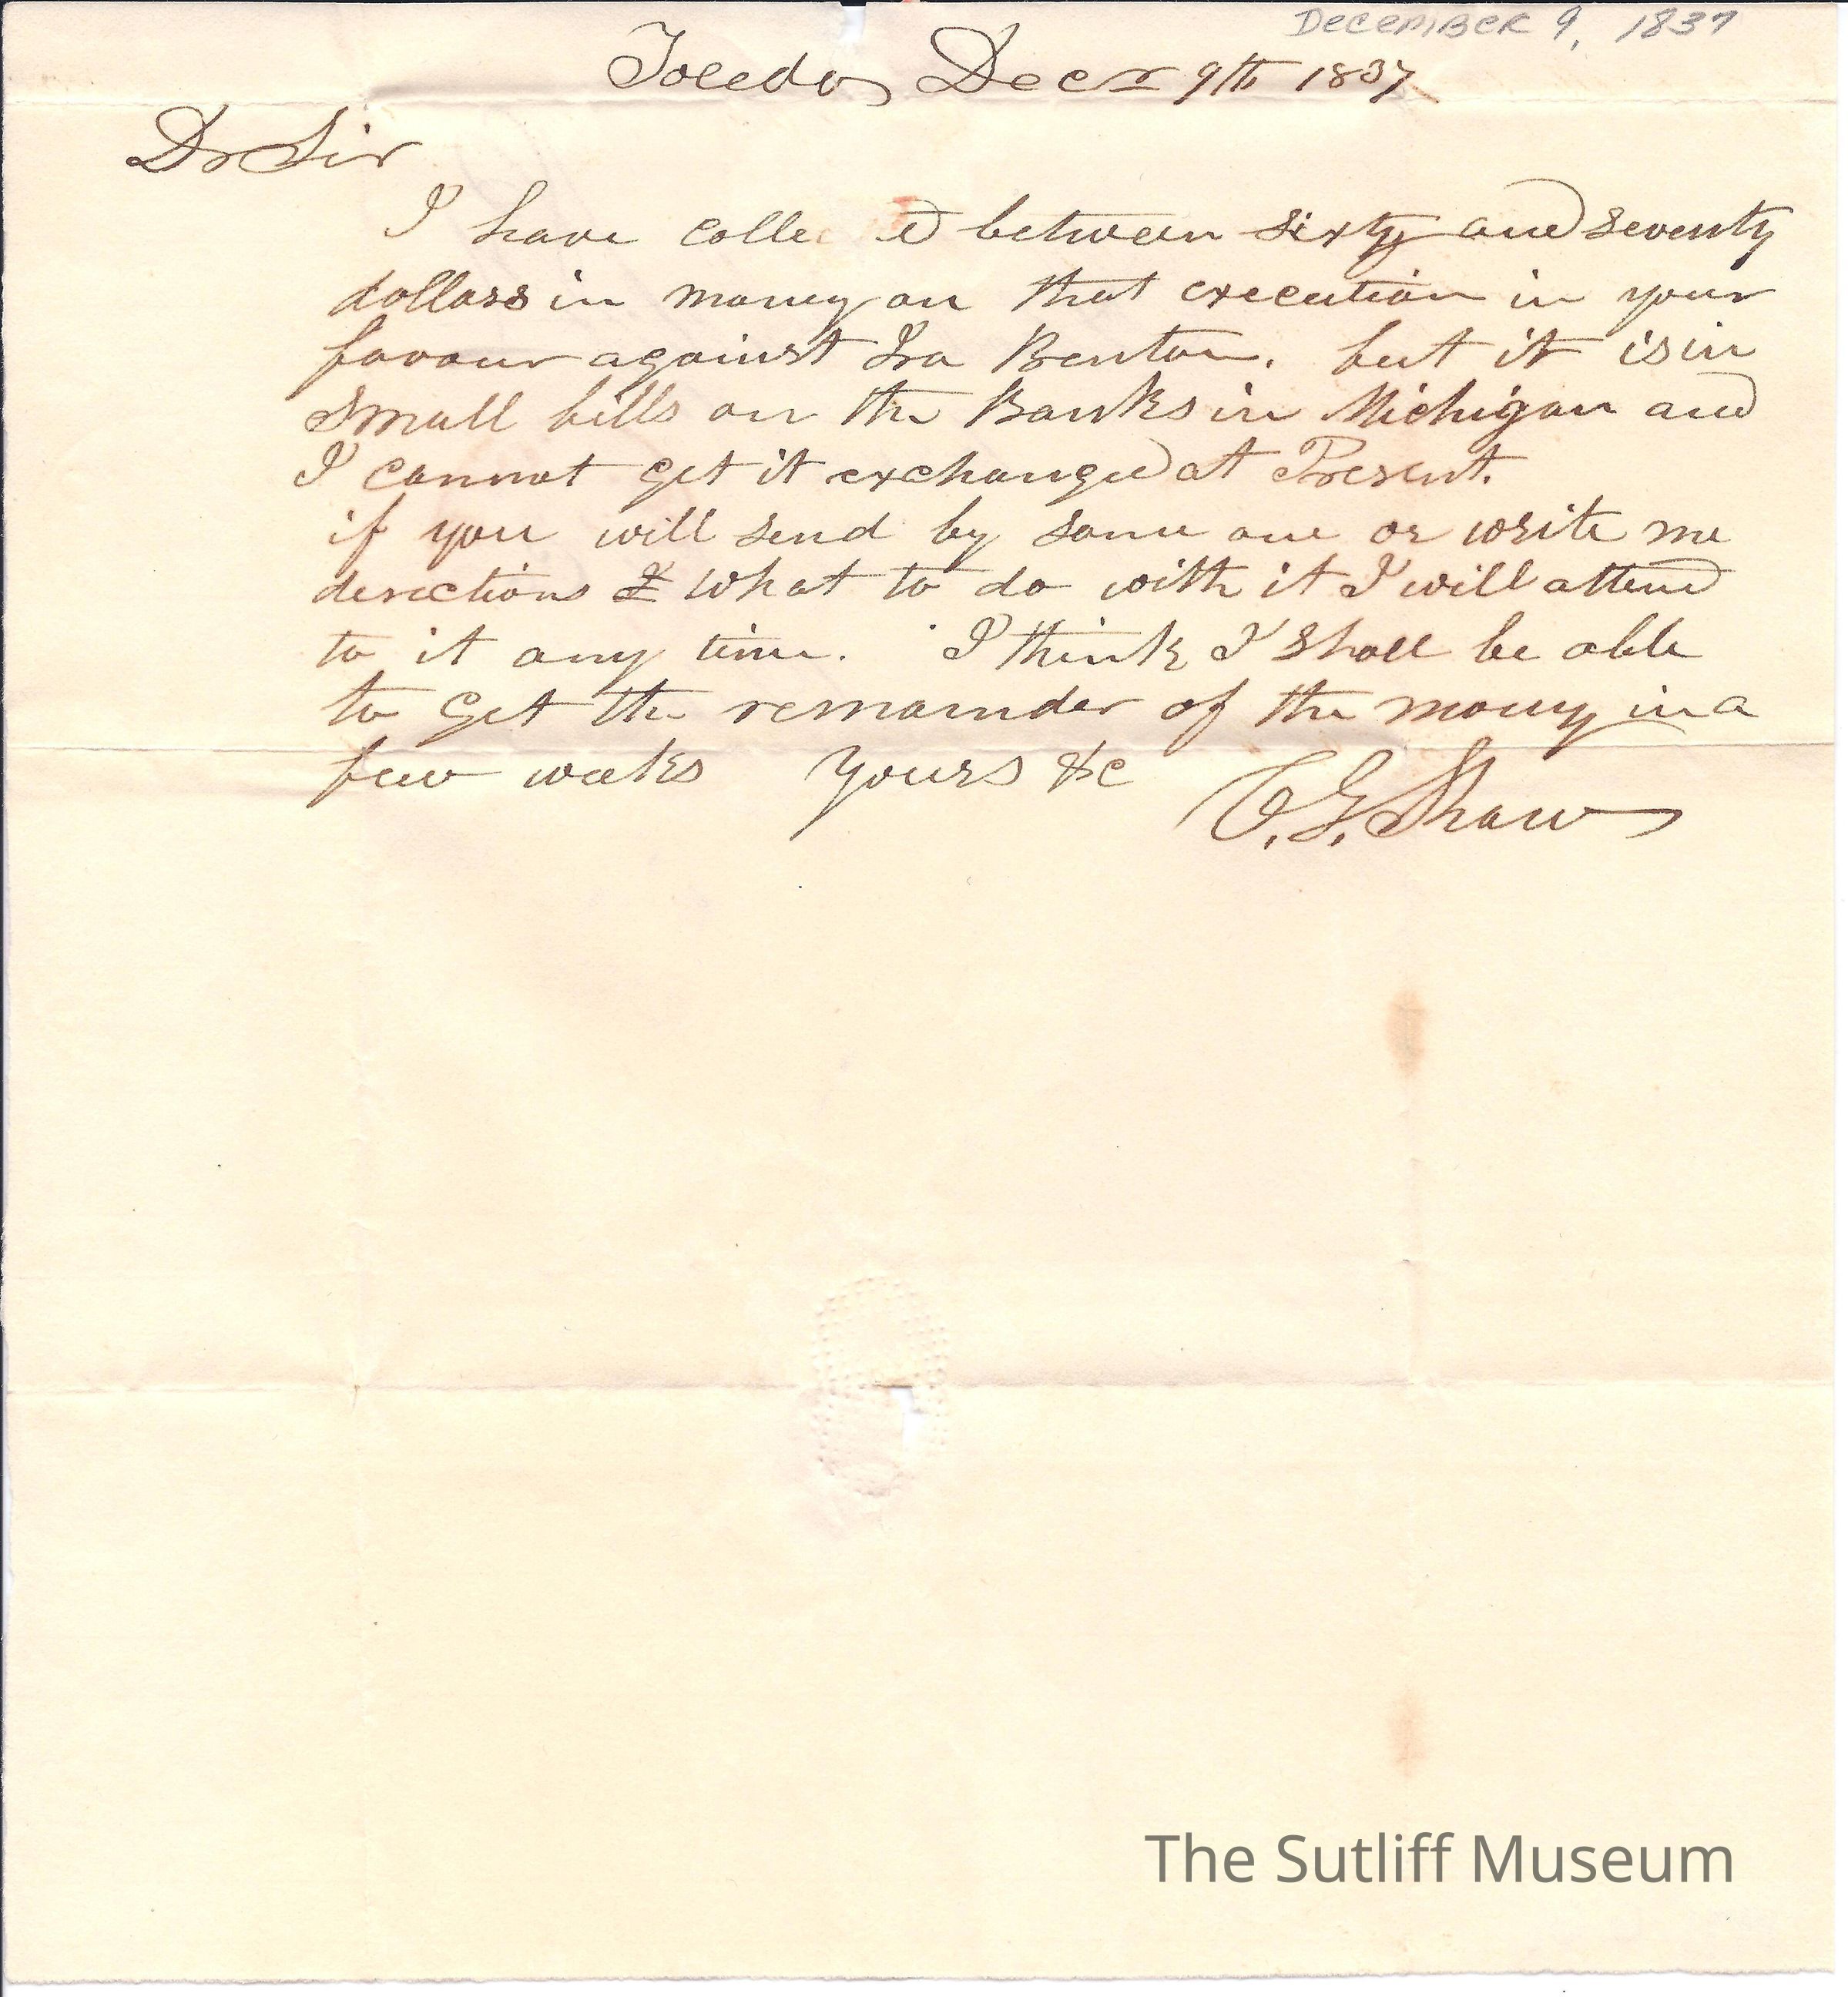 DECEMBER 9, 1837
Toledo Decr 9th 1837
Dr Sir
I have colle ed between sixty and seventy
dollars in money on that execution in your
favour against Ira Benton. but it is in
small bills on the Banks in Michigan and
I cannot get it exchanged at Present.
if you will send by some one or write me
derections & what to do with it I will attend
to it any time. I think I shall be able
to get the remainder of the money in a
few weeks Yours &c
G. Shaw
The Sutliff Museum